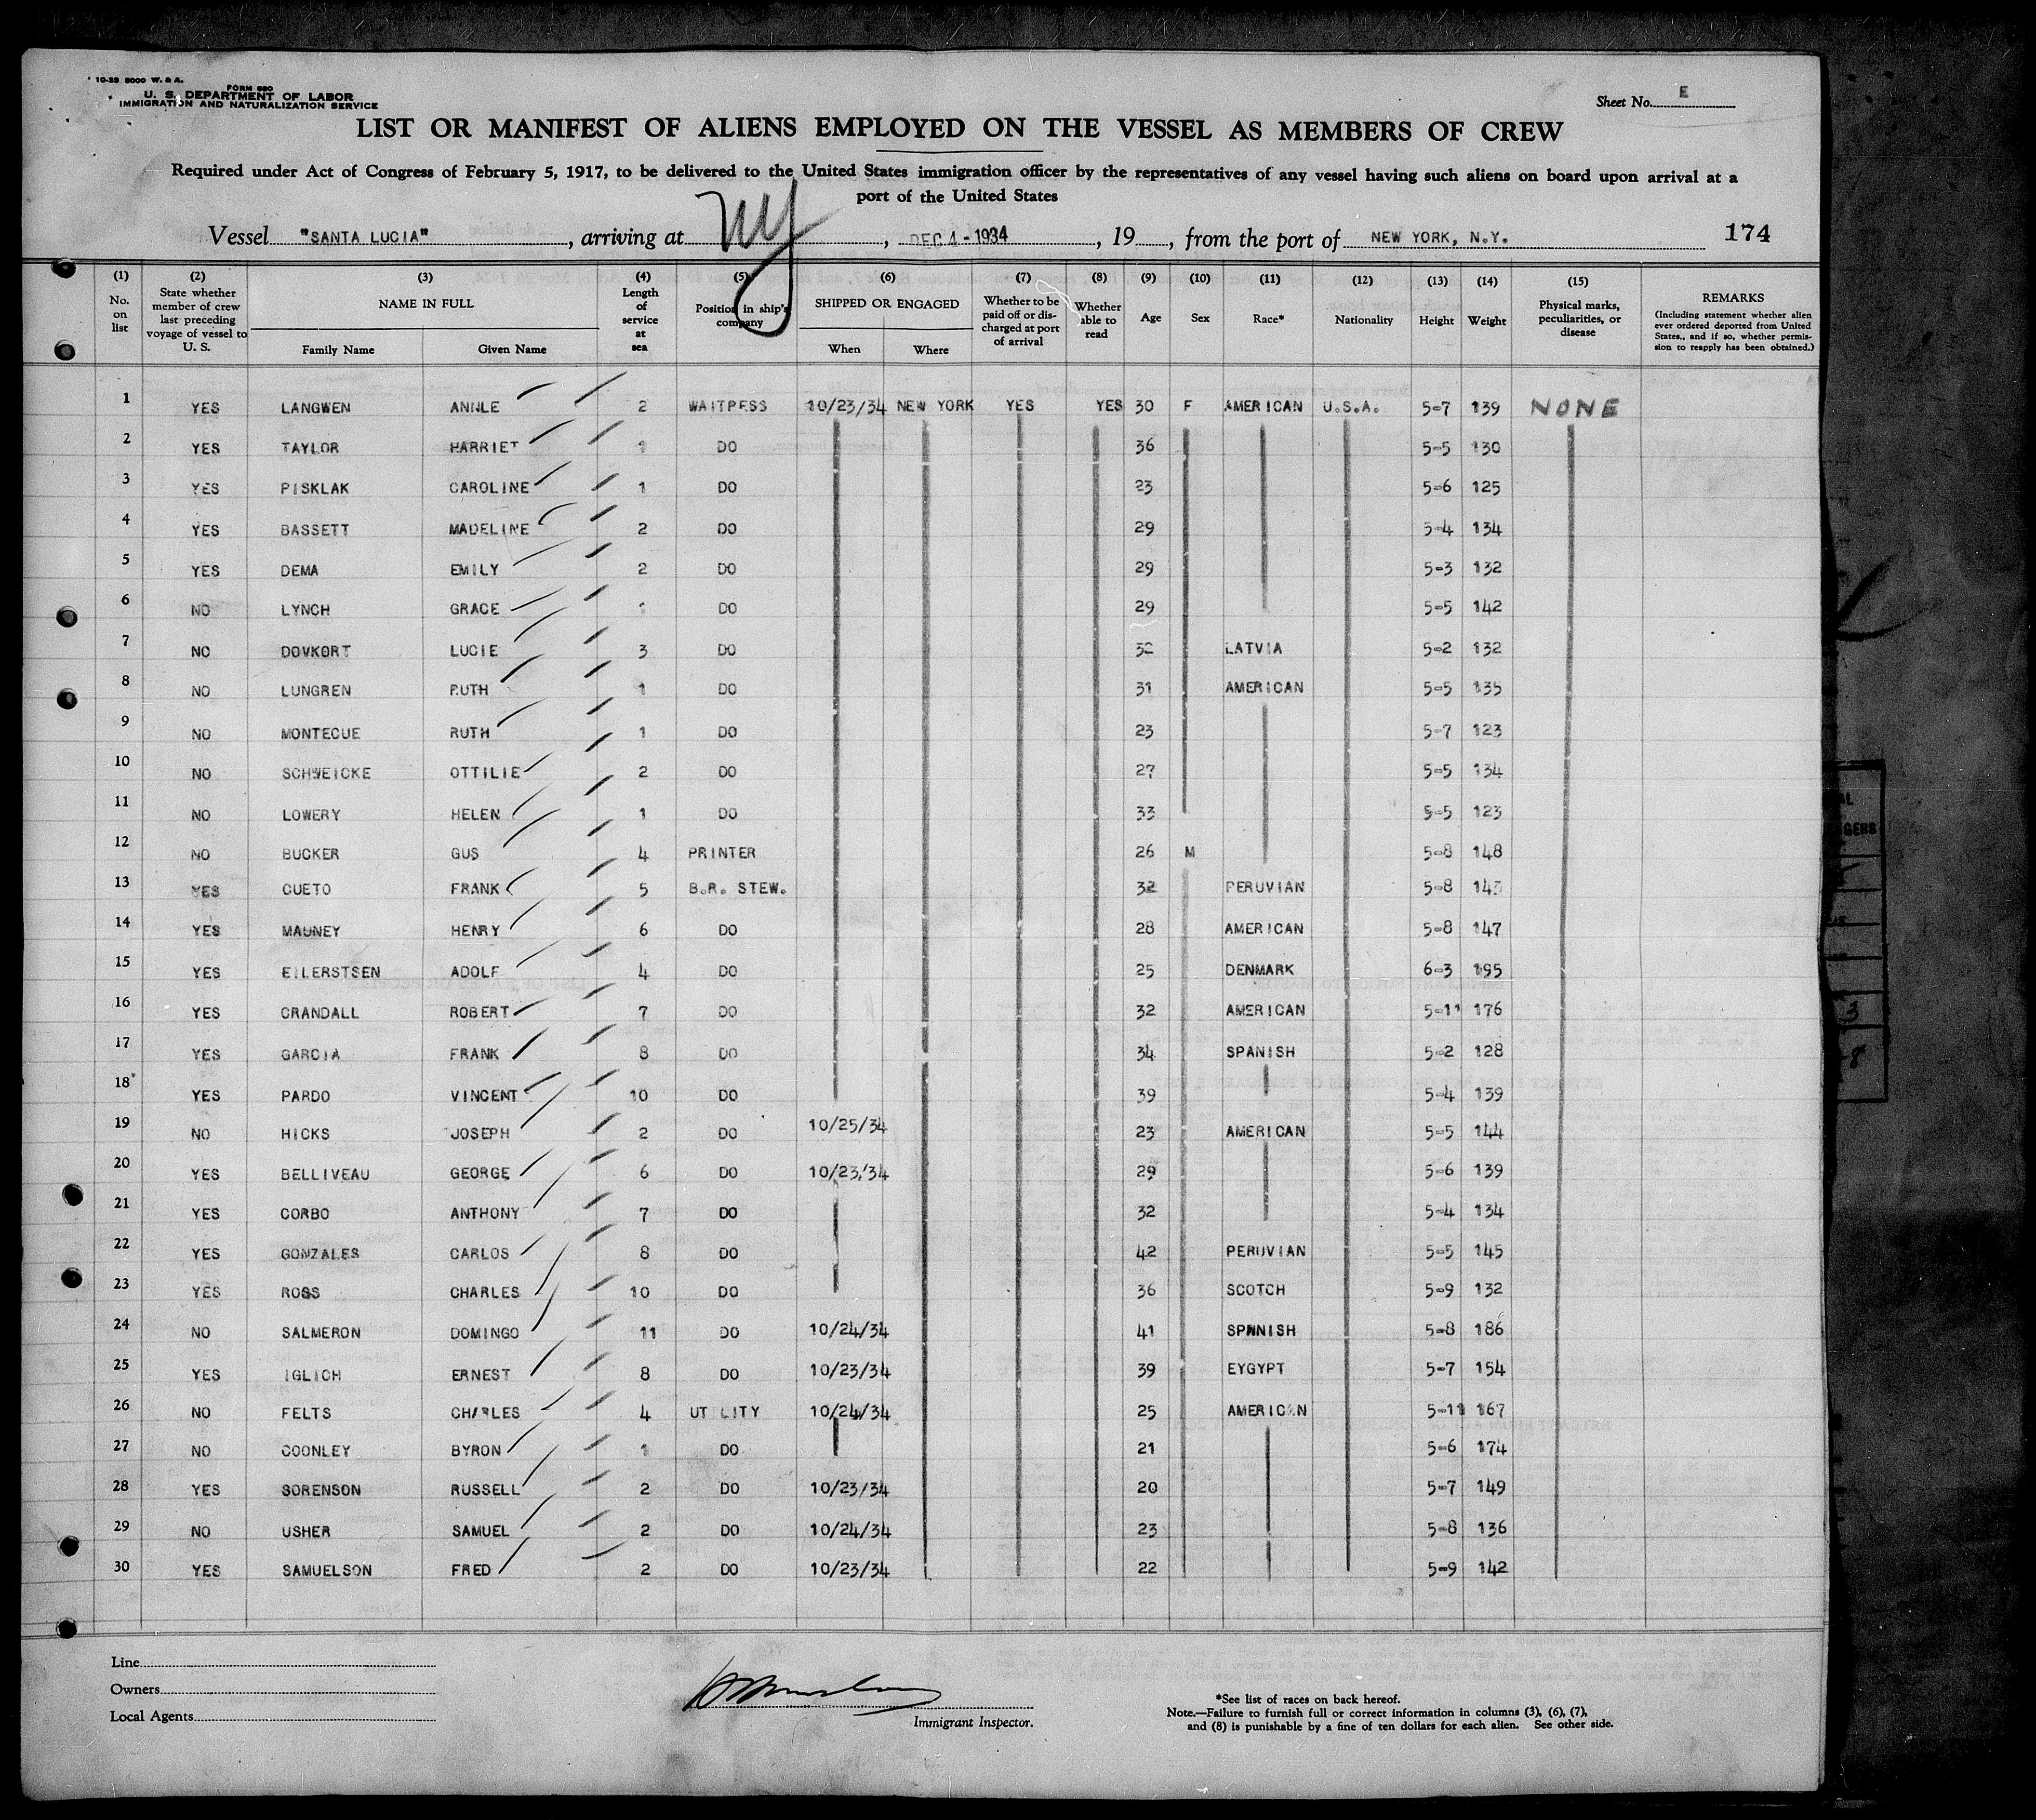 10-33 5000 W. & A.
FORM 680
U. S. DEPARTMENT OF LABOR
IMMIGRATION AND NATURALIZATION SERVICE
Sheet No. E
LIST OR MANIFEST OF ALIENS EMPLOYED ON THE VESSEL AS MEMBERS OF CREW
Required under Act of Congress of February 5, 1917, to be delivered to the United States immigration officer by the representatives of any vessel having such aliens on board upon arrival at a
port of the United States
Vessel "SANTA LUCIA", arriving at NY, DEC 4 - 1934, 19, from the port of NEW YORK, N.Y. 174
(1) (2) (3) (4) (5) (6) (7) (8) (9) (10) (11) (12) (13) (14) (15)
No. on list
State whether member of crew last preceding voyage of vessel to U. S.
NAME IN FULL
Family Name Given Name
Length of service at sea
Position in ship's company
SHIPPED OR ENGAGED
When Where
Whether to be paid off or discharged at port of arrival
Whether able to read
Age
Sex
Race*
Nationality
Height
Weight
Physical marks, peculiarities, or disease
REMARKS
(Including statement whether alien ever ordered deported from United States, and if so, whether permission to reapply has been obtained.)
1 YES LANGWEN ANNLE 2 WAITPESS 10/23/34 NEW YORK YES YES 30 F AMERICAN U.S.A. 5-7 139 NONE
2 YES TAYLOR HARRIET 1 DO 36 5-5 130
3 YES PISKLAK CAROLINE 1 DO 23 5-6 125
4 YES BASSETT MADELINE 2 DO 29 5-4 134
5 YES DEMA EMILY 2 DO 29 5-3 132
6 NO LYNCH GRACE 1 DO 29 5-5 142
7 NO DOVKORT LUCIE 3 DO 32 LATVIA 5-2 132
8 NO LUNGREN RUTH 1 DO 31 AMERICAN 5-5 135
9 NO MONTECUE RUTH 1 DO 23 5-7 123
10 NO SCHWEICKE OTTILIE 2 DO 27 5-5 134
11 NO LOWERY HELEN 1 DO 33 5-5 123
12 NO BUCKER GUS 4 PRINTER 26 M 5-8 148
13 YES CUETO FRANK 5 B.R. STEW. 32 PERUVIAN 5-8 143
14 YES MAUNEY HENRY 6 DO 28 AMERICAN 5-8 147
15 YES EILERSTSEN ADOLF 4 DO 25 DENMARK 6-3 195
16 YES CRANDALL ROBERT 7 DO 32 AMERICAN 5-11 176
17 YES GARCIA FRANK 8 DO 34 SPANISH 5-2 128
18 YES PARDO VINCENT 10 DO 39 5-4 139
19 NO HICKS JOSEPH 2 DO 10/25/34 23 AMERICAN 5-5 144
20 YES BELLIVEAU GEORGE 6 DO 10/23/34 29 5-6 139
21 YES CORBO ANTHONY 7 DO 32 5-4 134
22 YES GONZALES CARLOS 8 DO 42 PERUVIAN 5-5 145
23 YES ROSS CHARLES 10 DO 36 SCOTCH 5-9 132
24 NO SALMERON DOMINGO 11 DO 10/24/34 41 SPANISH 5-8 186
25 YES IGLICH ERNEST 8 DO 10/23/34 39 EYGYPT 5-7 154
26 NO FELTS CHARLES 4 UTILITY 10/24/34 25 AMERICAN 5-11 167
27 NO COONLEY BYRON 1 DO 21 5-6 174
28 YES SORENSON RUSSELL 2 DO 10/23/34 20 5-7 149
29 NO USHER SAMUEL 2 DO 10/24/34 23 5-8 136
30 YES SAMUELSON FRED 2 DO 10/23/34 22 5-9 142
Line
Owners
Local Agents
Immigrant Inspector.
*See list of races on back hereof.
Note.—Failure to furnish full or correct information in columns (3), (6), (7),
and (8) is punishable by a fine of ten dollars for each alien. See other side.